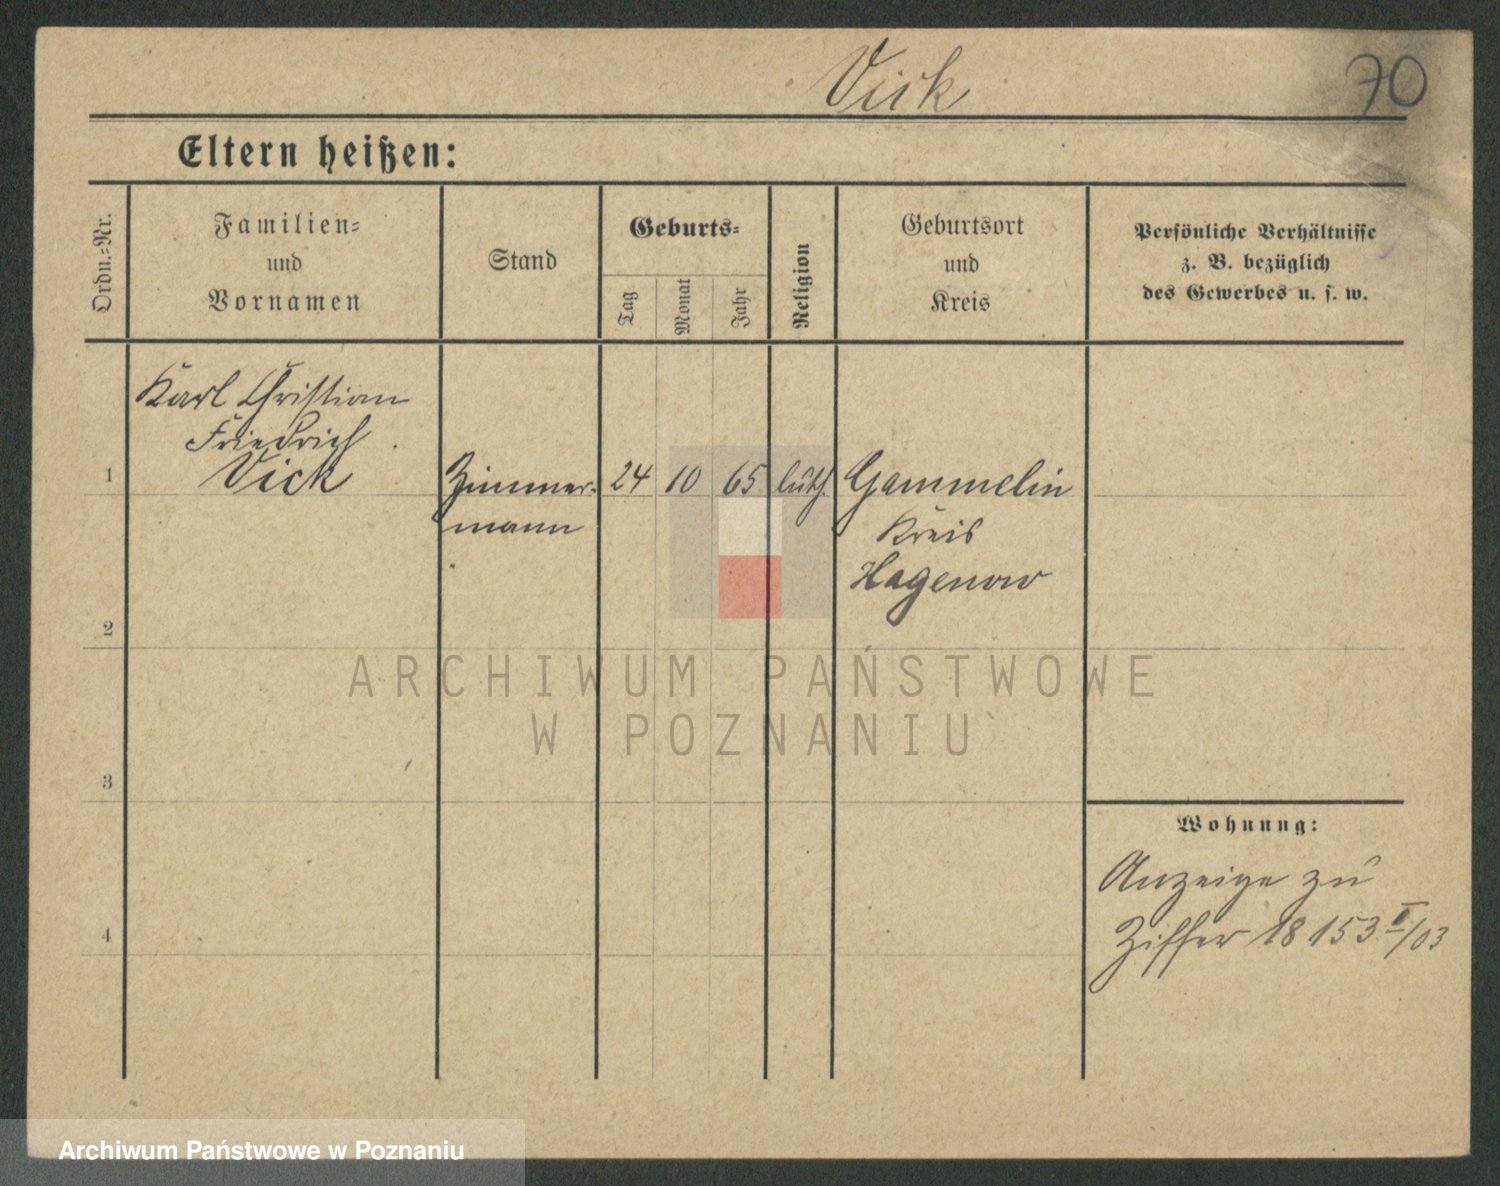 Vick
70
Eltern heißen:
Ordn.-Nr.
Familien-
und
Vornamen
Stand
Geburts-
Tag
Monat
Jahr
Religion
Geburtsort
und
Kreis
Persönliche Verhältnisse
z. B. bezüglich
des Gewerbes u. s. w.
Karl Christian
Friedrich
1 Vick Zimmer- 24 10 65 luth. Gammelin
mann Kreis
Hagenow
2
ARCHIWUM PAŃSTWOWE
W POZNANIU
3
Wohnung:
Anzeige zu
4 Ziffer 18 153 I/03
Archiwum Państwowe w Poznaniu